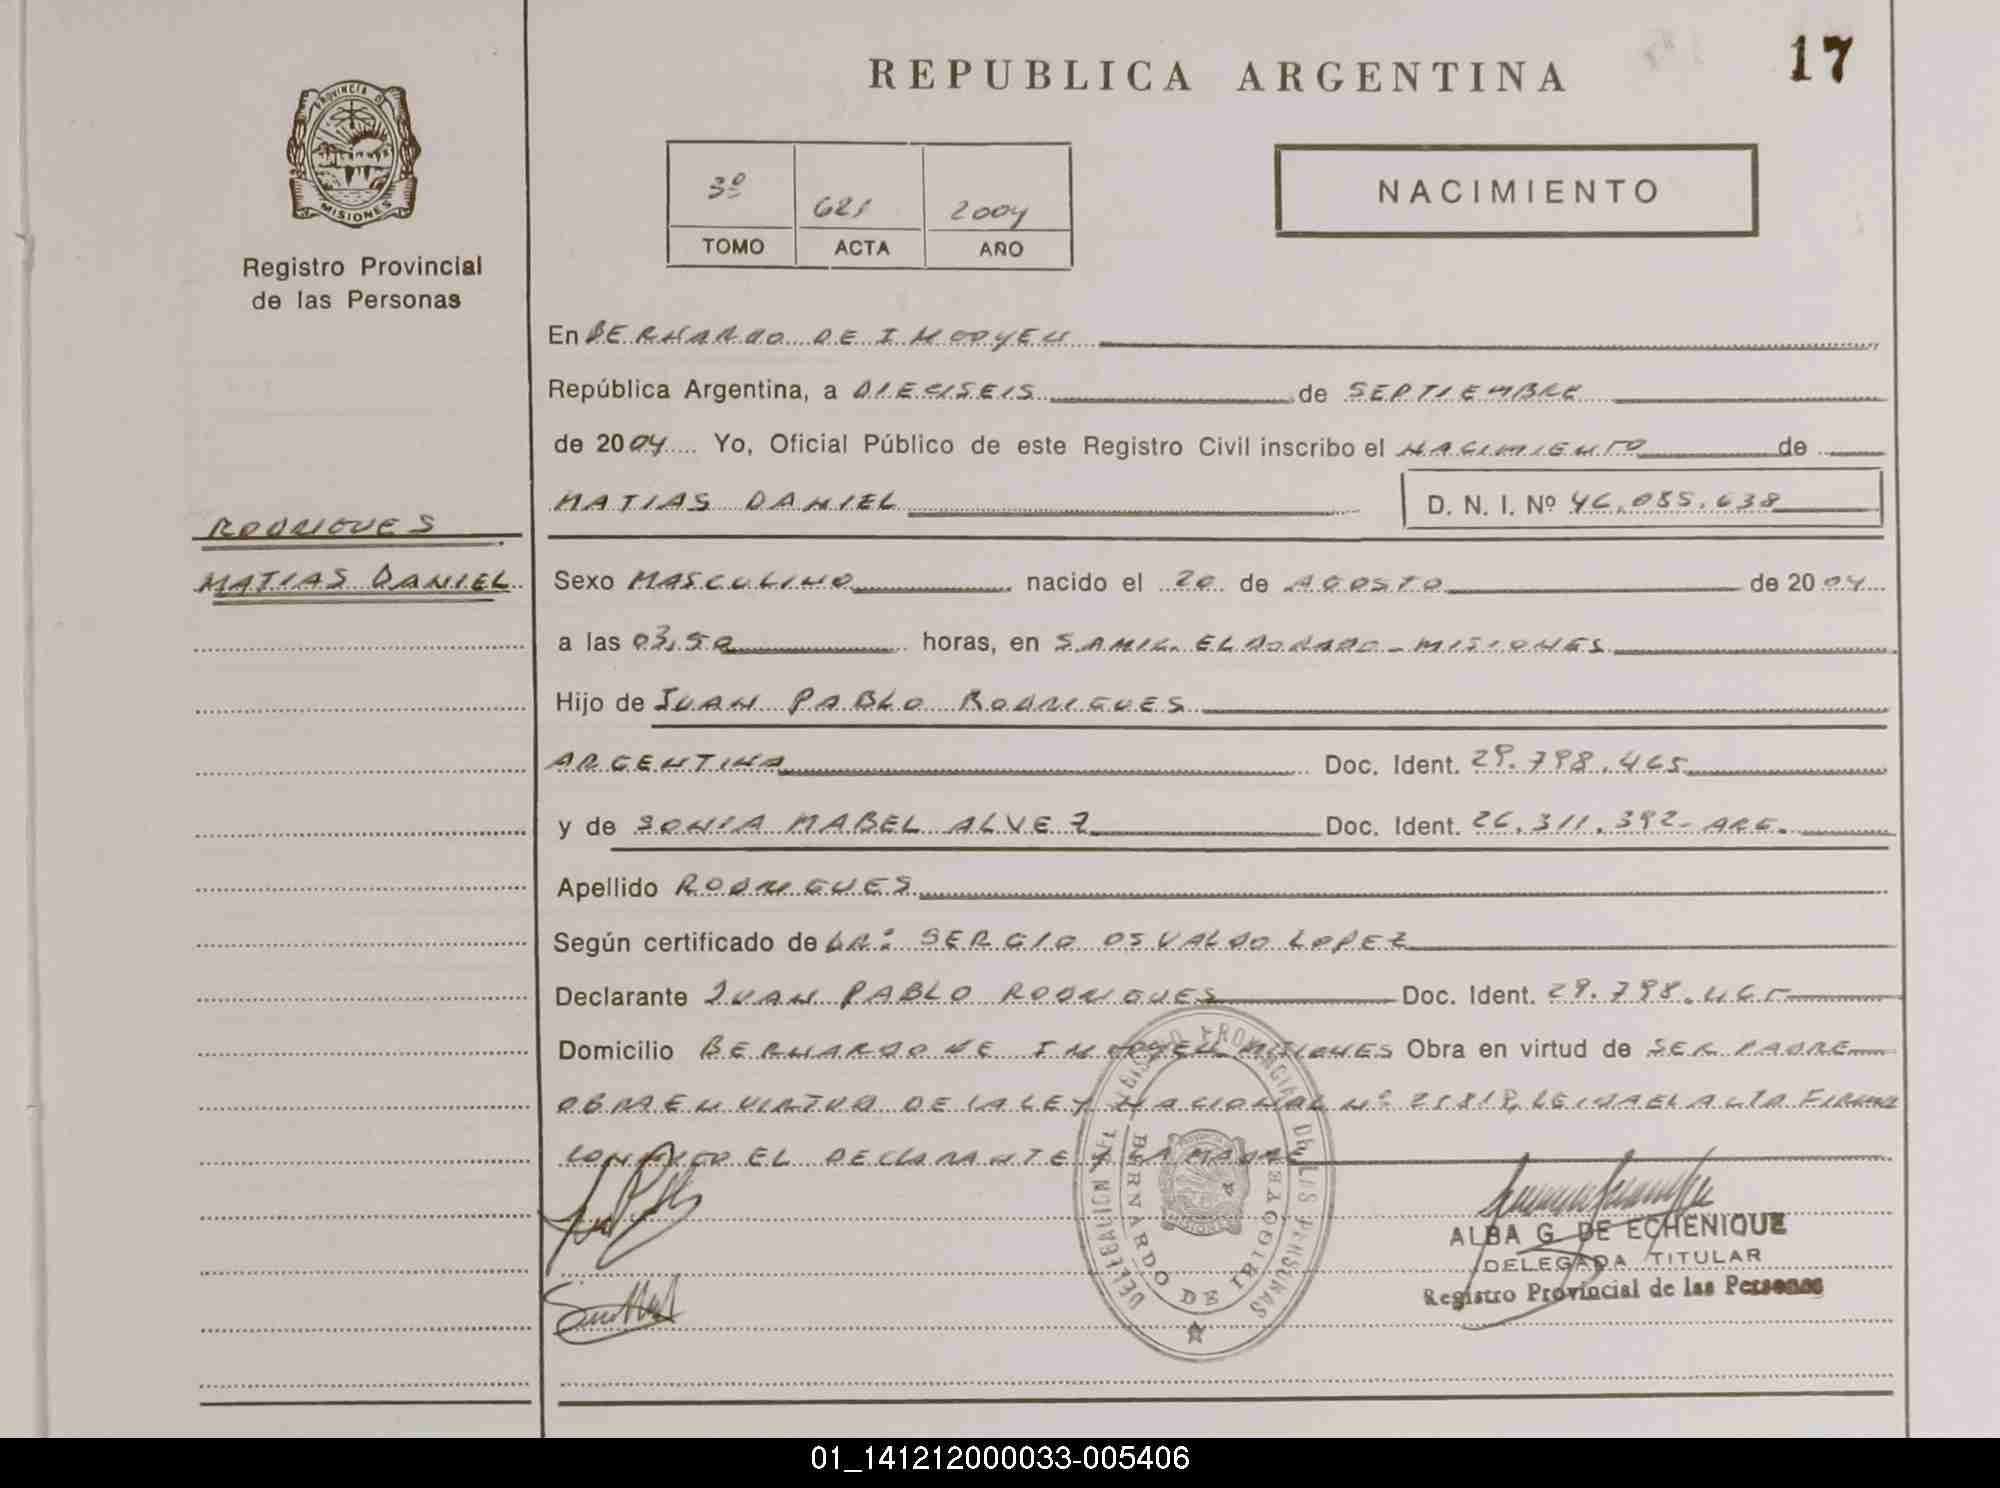 REPUBLICA ARGENTINA
17
PROVINCIA DE
MISIONES
Registro Provincial
de las Personas
3º 2004
TOMO ACTA AÑO
NACIMIENTO
En BERNARDO DE IRIGOYEN
República Argentina, a DIECISEIS de SEPTIEMBRE
de 2004 Yo, Oficial Público de este Registro Civil inscribo el NACIMIENTO de
MATIAS DANIEL D. N. I. Nº 46.085.638
RODRIGUES
MATIAS DANIEL
Sexo MASCULINO nacido el 20 de AGOSTO de 2004
a las 03,50 horas, en SAMIC. ELDORADO - MISIONES
Hijo de JUAN PABLO RODRIGUES
ARGENTINA Doc. Ident. 29.798.465
y de SONIA MABEL ALVEZ Doc. Ident. 26.311.392- ARG.
Apellido RODRIGUES
Según certificado de DR: SERGIO OSVALDO LOPEZ
Declarante JUAN PABLO RODRIGUES Doc. Ident. 29.798.465
Domicilio BERNARDO DE IRIGOYEN MISIONES Obra en virtud de SER PADRE
OBRA EN VIRTUD DE LA LEY NACIONAL Nº 25818, LEIDA EL ACTA FIRMAN
CONMIGO EL DECLARANTE Y LA MADRE
DELEGACION DEL REGISTRO PROVINCIAL DE LAS PERSONAS
BERNARDO DE IRIGOYEN
ALBA G. DE ECHENIQUE
DELEGADA TITULAR
Registro Provincial de las Personas
01_141212000033-005406